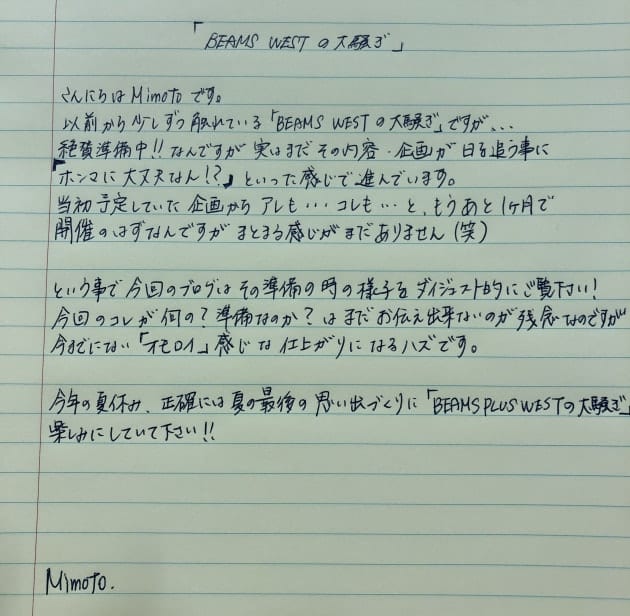 「BEAMS WEST の大騒ぎ」
さんにちは Mimoto です。
以前から少しずつ触れている「BEAMS WEST の大騒ぎ」ですが、、、
絶賛準備中!! なんですが 実はまだ その内容・企画が 日を追う事に
「ホンマに大丈夫なん!?」といった感じで進んでいます。
当初予定していた 企画から アレも・・・コレも・・・と、もうあと1ヶ月で
開催のはずなんですが まとまる感じがまだありません(笑)
という事で今回のブログは その準備の時の様子を ダイジェスト的にご覧下さい!
今回のコレが 何の?準備なのか?は まだお伝え出来ないのが 残念なのですが
今までにない「オモロイ」感じな仕上がりに なるハズです。
今年の夏休み、正確には夏の最後の思い出づくりに「BEAMS PLUS WESTの大騒ぎ」
楽しみにしていて下さい!!
Mimoto.